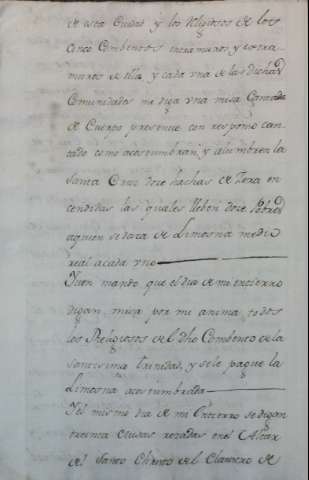 de esta Ciudad y los Religiosos de los
Cinco Combentos intramuros y extra
muros de ella y cada vna de las dichas
Comunidades me diga vna misa Cantada
de Cuerpo presente con responso can
tado como acostumbran, y alumbren la
Santa Cruz doze hachas de Zera en
cendidas las quales lleben doze Pobres
aquien se dara de Limosna medio
real a cada vno
Yten mando que el dia de mi entierro
digan misa por mi anima todos
los Religiosos del dho Combento de la
Santisima trinidad, y sele pague la
Limosna acostumbrada
Y el mismo dia de mi Entierro se digan
treinta misas rezadas en el Altar
del Santo Christo del Claustro de